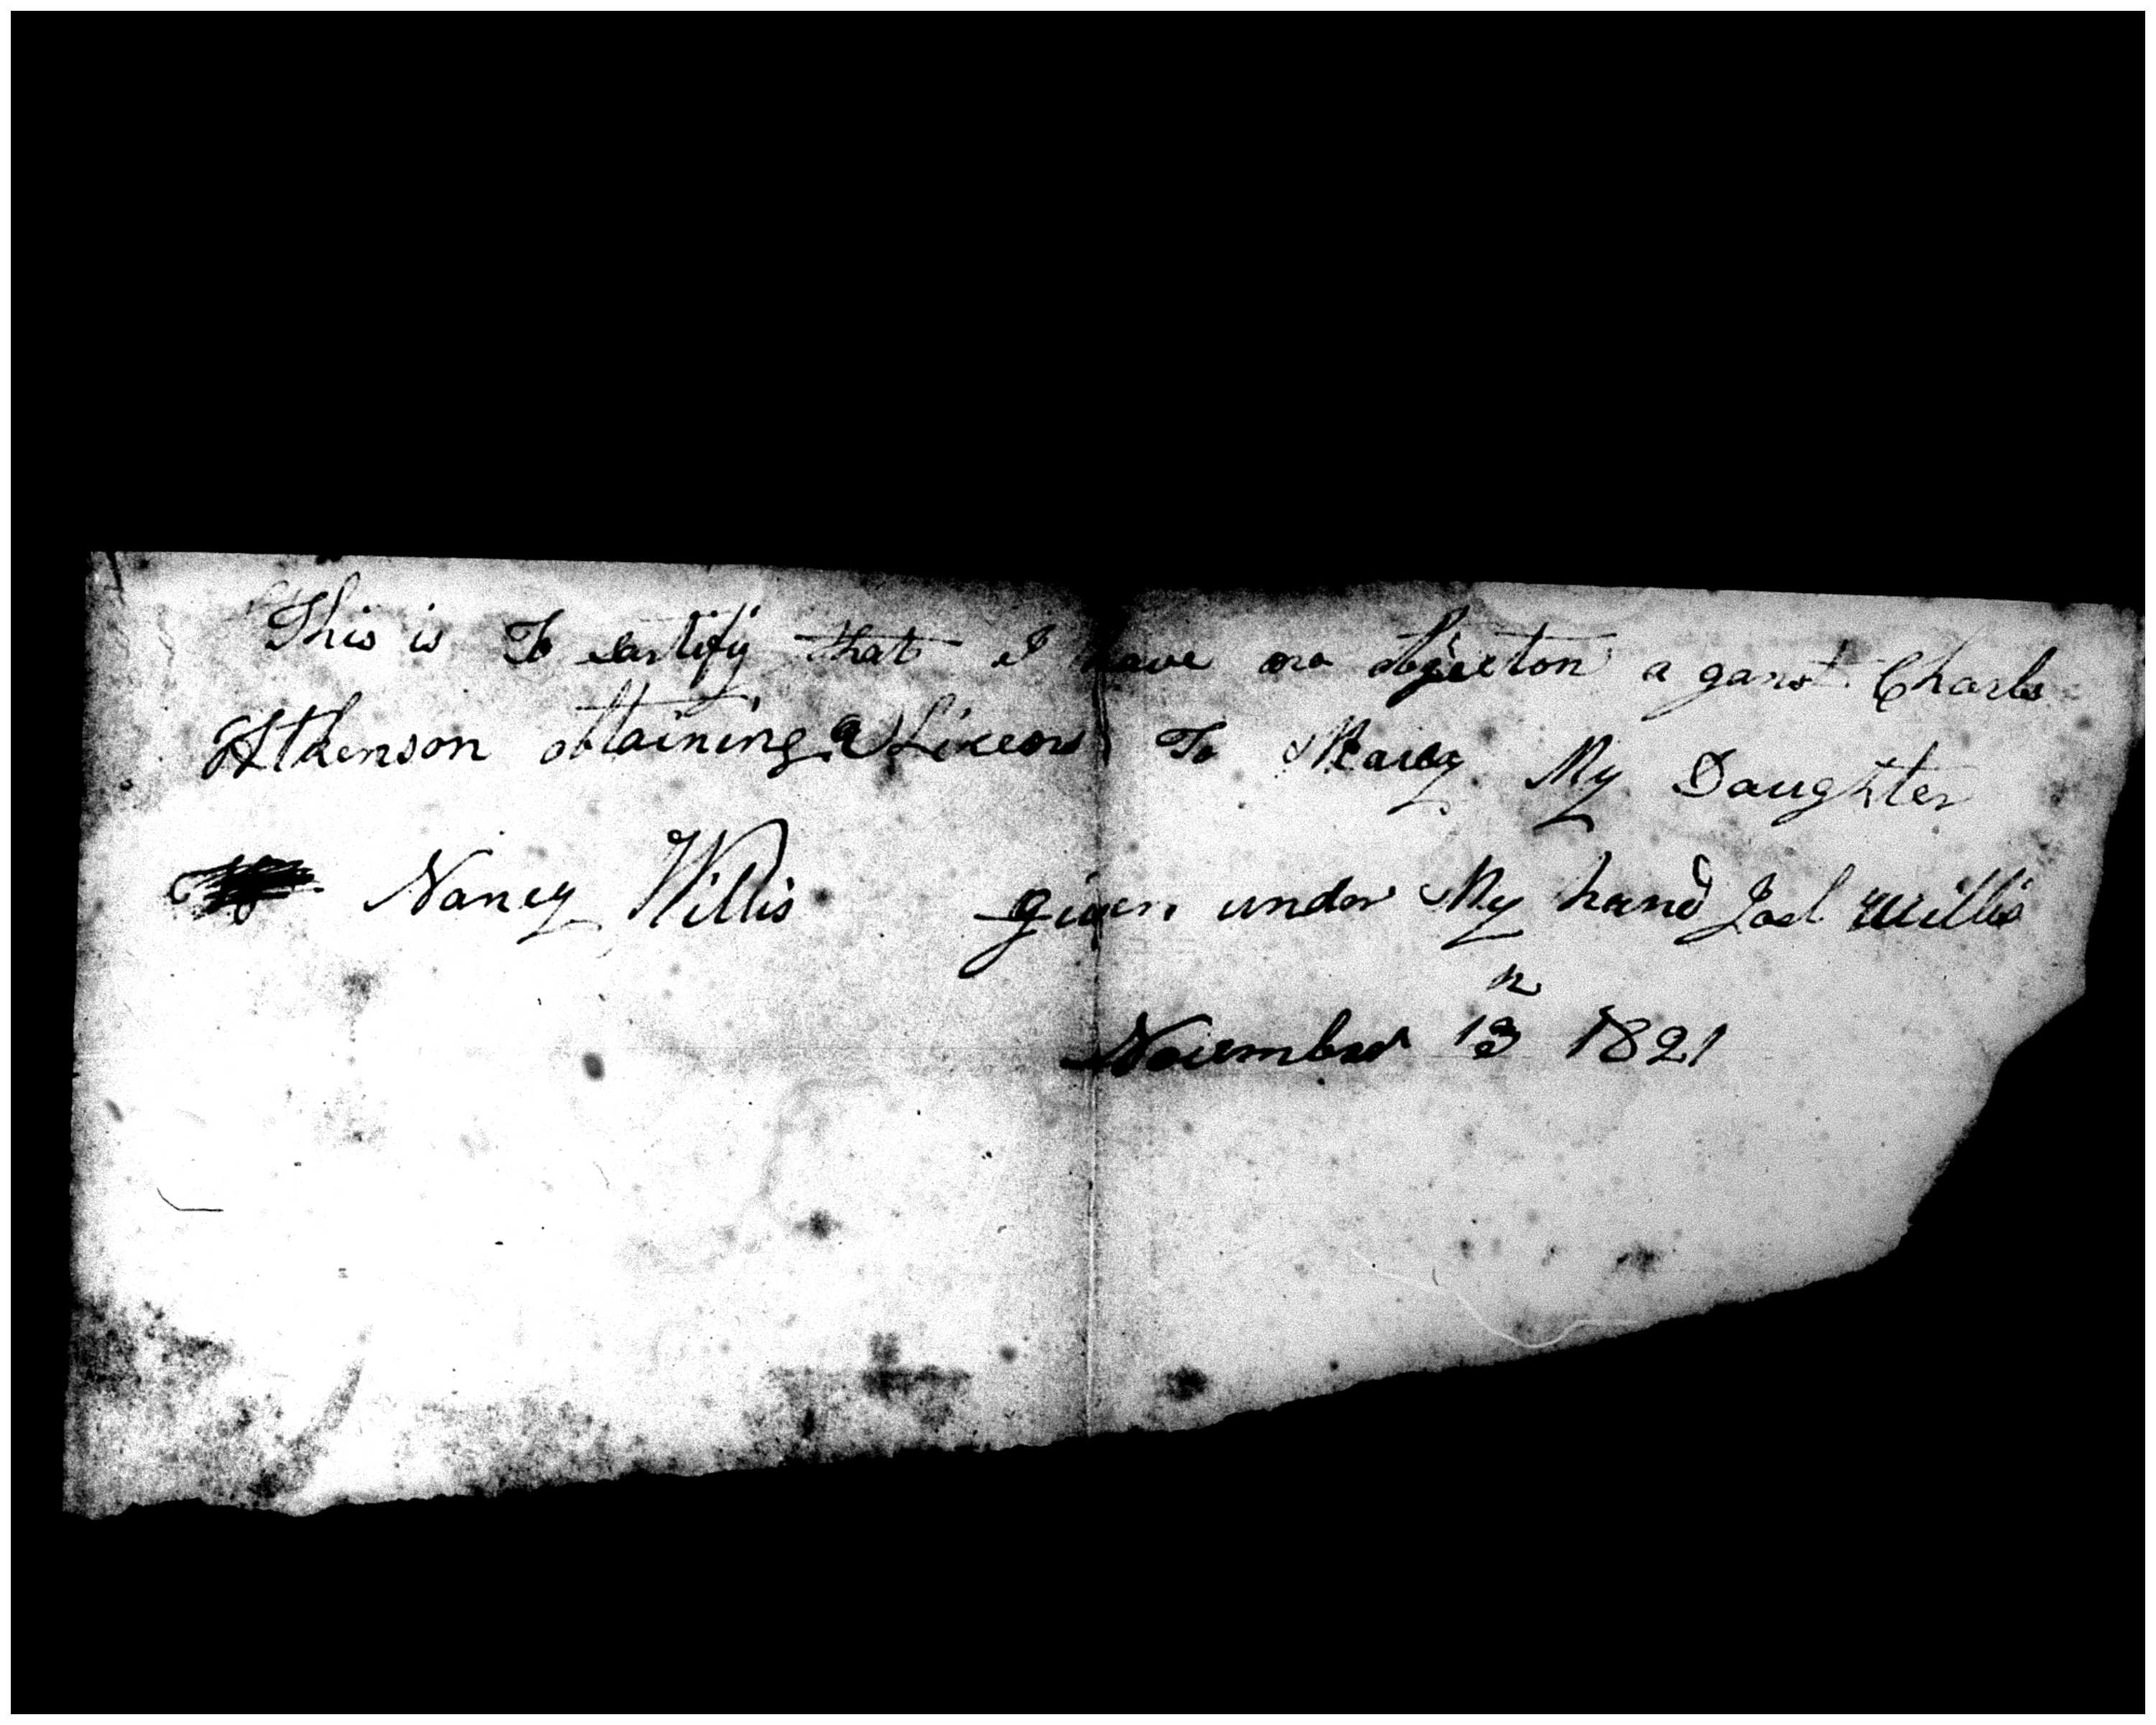 This is To certify that I have no objecton a ganst Charls
Atkenson obtaining a Licens To Marey My Daughter
Nancy Willis given under My hand Joel Willis
November 13 1821